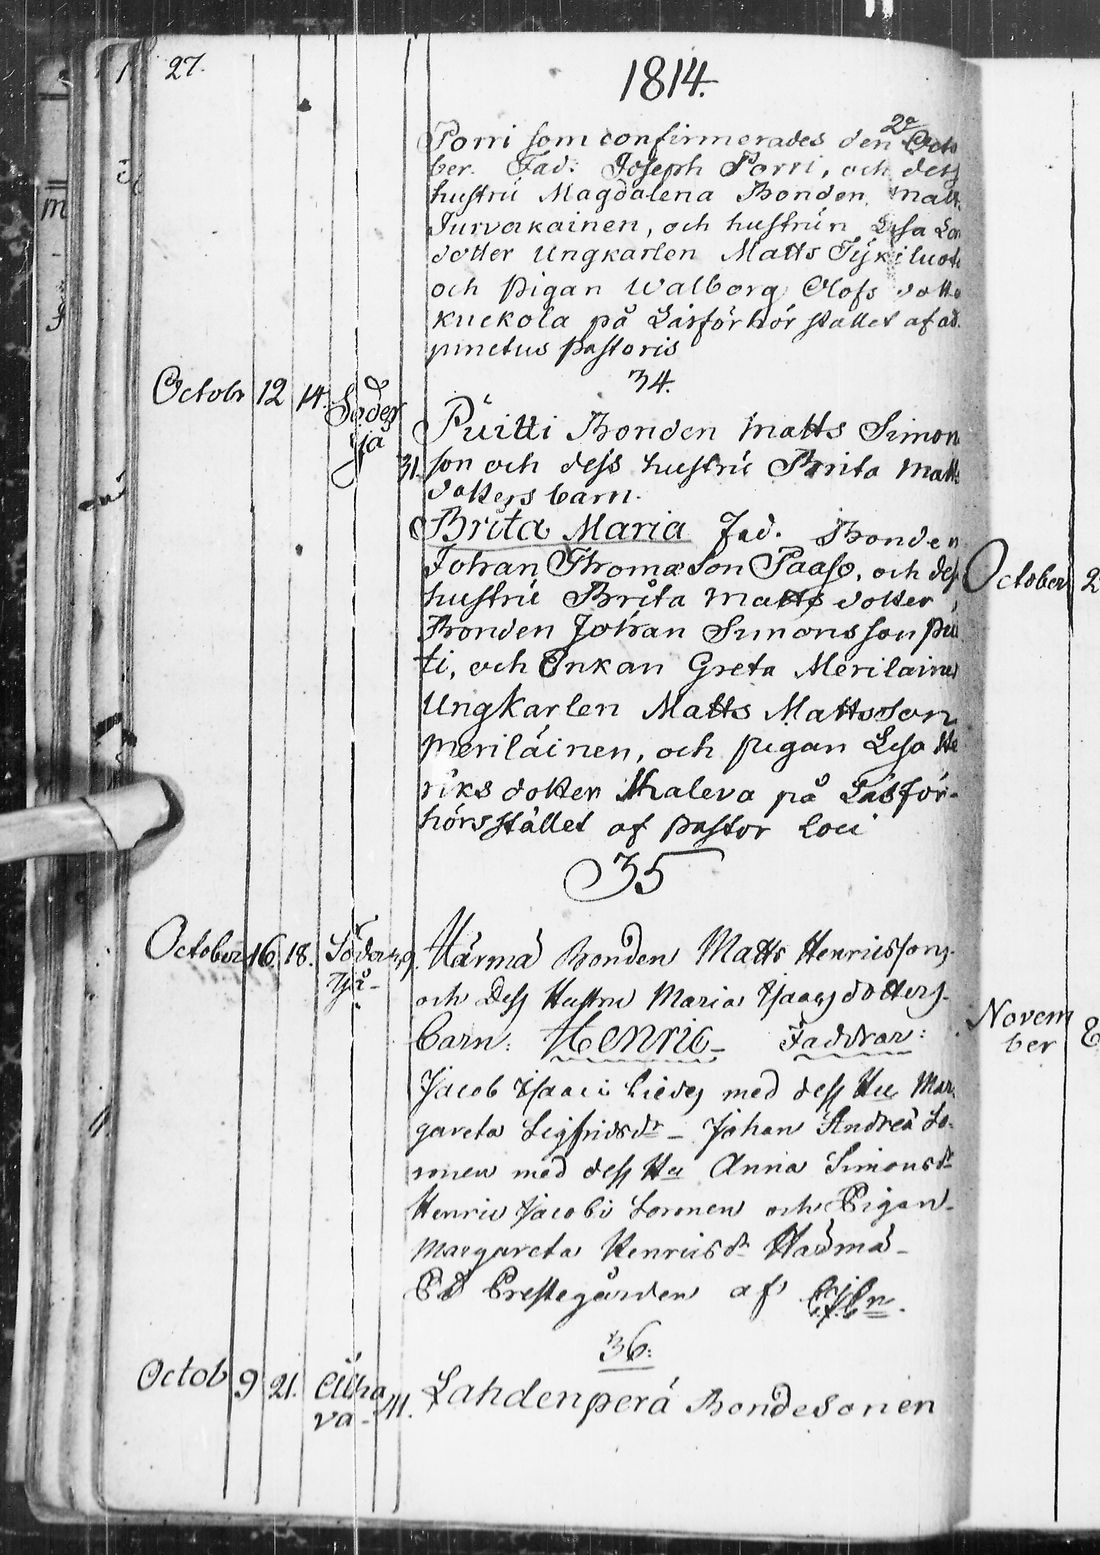 27.
1814.
Porri som confirmerades den 2e Octo
ber. Fad: Joseph Porri, och dess
hustru Magdalena Bonden Matts
Turvakainen, och hustrun Lisa
dotter Ungkarlen Matts
och pigan Walborg Olofs dotte
Kuckola på Läsförhör stället af ad
pinctus Pastoris
34.
Octobr 12 14. Söder
sjå
31.
Puitti Bonden Matts Simon
son och dess hustru Brita Matts
dotters barn.
Brita Maria Fad. Bonden
Johan Thomæson Paaso, och dess
hustru Brita Matts dotter,
Bonden Johan Simonsson Pui
ti, och Enkan Greta Merilainen
Ungkarlen Matts Mattsson
Meriläinen, och pigan Lisa He
riks dotter Thaleva på Läsför-
hörsstället af Pastor Loci
35
October 16. 18. Söder
sjå-
39.
Härmä Bonden Matts Henricssons
och Dess Hustru Maria Isaacs dotters
barn: Henric- Faddrar:
Jacob Isaaci Liedes med dess Hu Mar
gareta Sigfridsdr - Johan Andreæ So-
ronen med dess Hu Anna Simonsdr
Henric Jacobi Soronen och Pigan
Margareta Henricsdr Härmä-
På Prestegården af
36.
Octob 9 21. Alha
va-
41.
Lahdenperä Bondesonen
October 2
Novem
ber